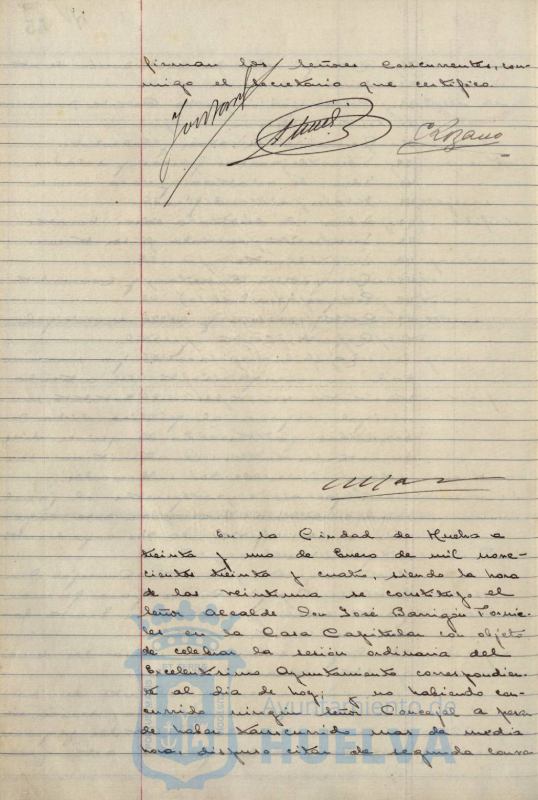 firman los señores concurrentes, con-
migo el Secretario que certifico.
C Lozano
En la Ciudad de Huelva a
treinta y uno de Enero de mil nove-
cientos treinta y cuatro, siendo la hora
de las veintiuna se constituyó el
señor Alcalde Don José Barrigón Fornie-
les en la Casa Capitular con objeto
de celebrar la sesión ordinaria del
Excelentísimo Ayuntamiento correspondien-
te al día de hoy; y no habiendo con-
currido ningún señor Concejal a pesar
de haber transcurrido mas de media
hora, dispuso citar de segunda convo
Ayuntamiento de
HUELVA